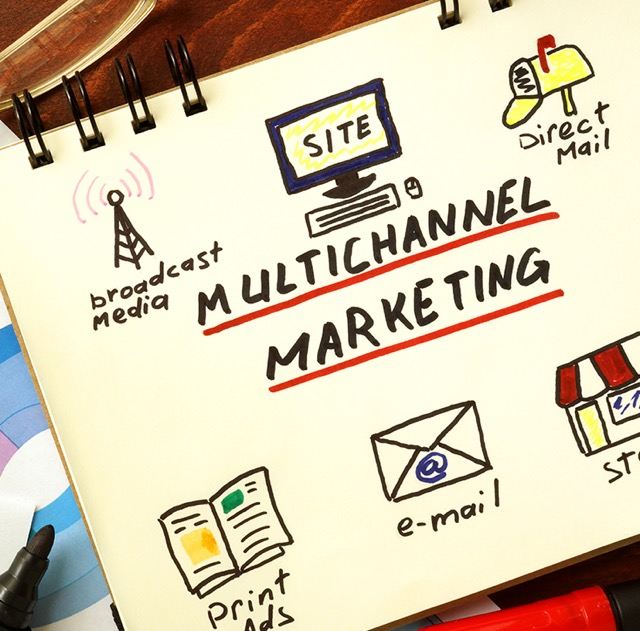 SITE
Direct
Mail
broadcast
media
MULTICHANNEL
MARKETING
@
e-mail
Print
Ads